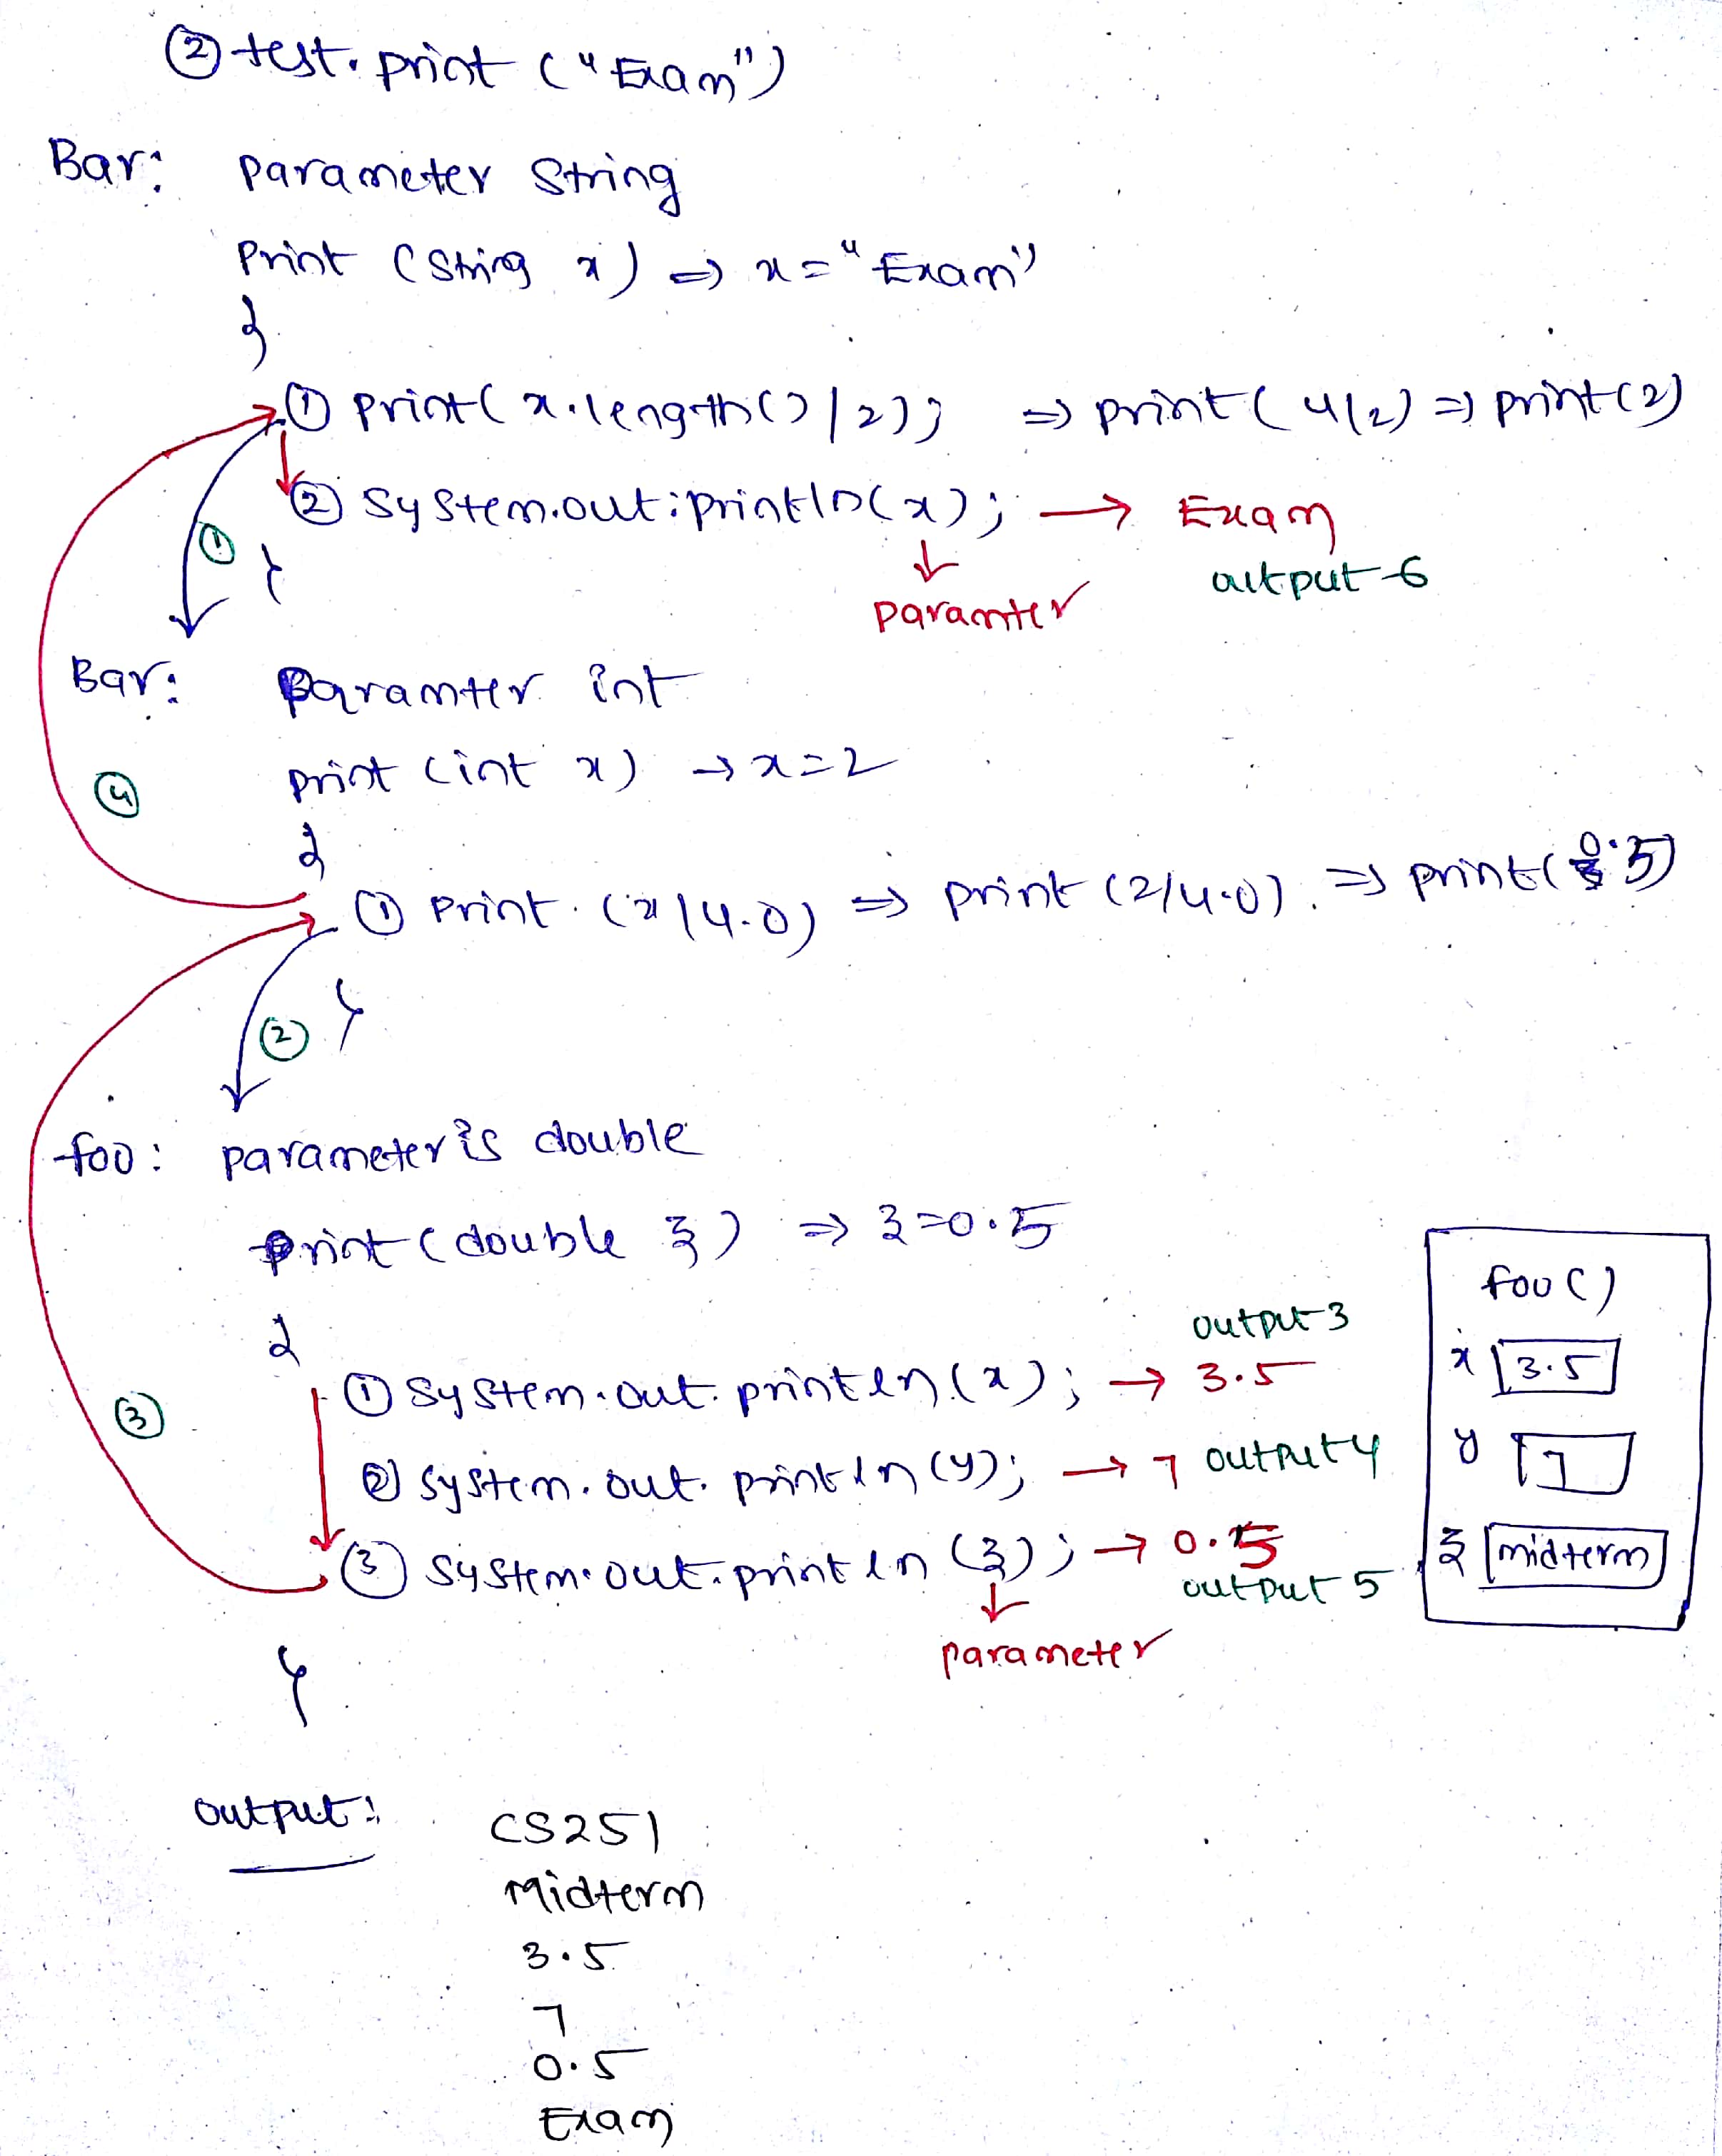 ② test. print ("Exam")
Bar: parameter String
Print (String x) ⇒ x = "Exam"
{
① print( x.length()/2); ⇒ print( 4/2) ⇒ print(2)
② System.out.println(x); → Exam
① }
↓
output-6
paramter
Bar: Paramter int
print (int x) → x=2
④
{
① Print (x/4.0) ⇒ print (2/4.0). ⇒ print(0.5)
② }
foo: parameter is double
print (double z) ⇒ z=0.5
{
foo()
output 3
① System.out.println(x); → 3.5
x 3.5
③
② System.out.println(y); → 7 output 4
y 7
③ System.out.println(z); → 0.5
z midterm
↓
output 5
parameter
}
output: CS251
Midterm
3.5
7
0.5
Exam